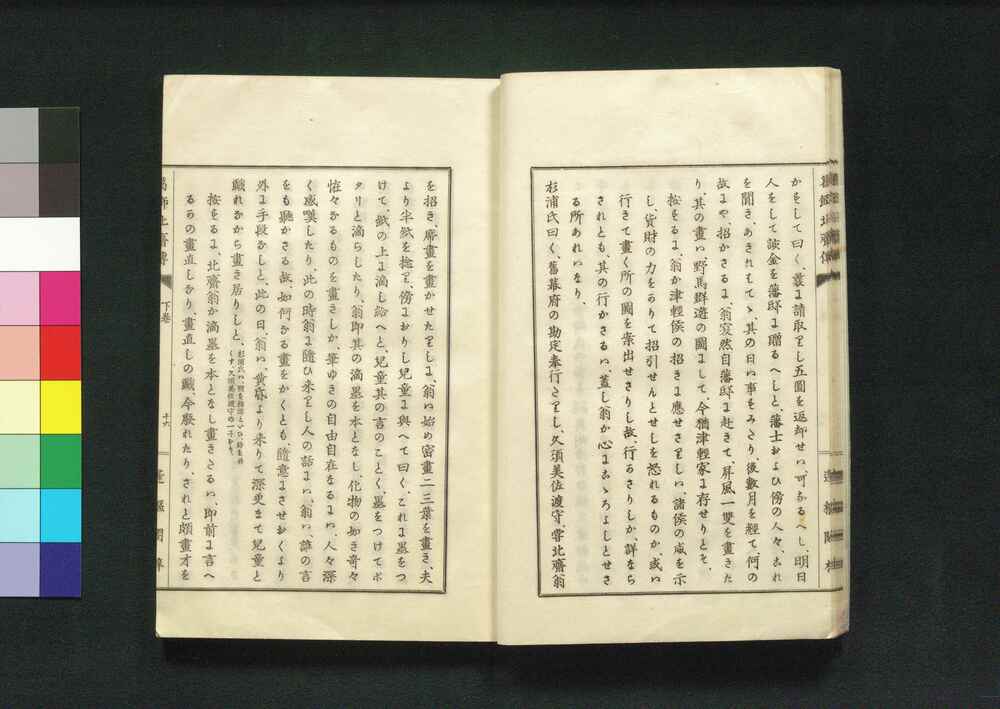 かをして曰く、裳に請取りし五圓を返却せい、可なるへし、明日
人をして談金を藩邸に贈るへしと、藩士および傍の人々、これ
を聞き、あきれもてゝ、其の日い事をみさり、後數月を經て、何の
故にや、招かさるに、翁寂然自藩邸に赴きて、屏風一雙を畫きた
り、其の畫い、野馬群遊の圖にして、今猶津輕家に存せりとぞ、
按をるに、翁か津輕侯の招きに應せさりしい、諸侯の威を示
し、貨財の力をかりて招引せんとせしを怒れるものか、或い
行きて畫く所の圖を案出せさりし故、行るさりしか、詳なら
されとも、其の行かさるい、蓋し翁か心にこゝろよしとせさ
る所あれいなり、
杉浦氏曰く、舊幕府の勘定奉行さりし、久須美佐渡守、甞北齋翁
を招き、席畫を畫かせたりしに、翁い始め密畫二三葉を畫き、夫
より半紙を捻り、傍におりし兒童に與へて曰く、これに墨をつ
けて、紙の上に滴し給へと、兒童其の言のことく、墨をつけてボ
タリと滴らしたり、翁即其の滴墨を本となし、化物の如き奇々
恠々なるものを畫きしか、筆ゆきの自由自在なるにい、人々深
く感嘆したり、此の時翁に隨ひ來りし人の話にい、翁い、誰の言
をも聽かさる故、如何なる畫をかくとも、隨意にさせおくより
外に手段なしと、此の日、翁い、黄昏より來りて深更まて兒童と
戲れなから畫き居りしと、
按をるに、北齋翁か滴墨を本となし畫きさるい、即前に言へ
るらの畫直しなり、畫直しの戲、今廢れたり、されと頗畫才を
下卷
十六